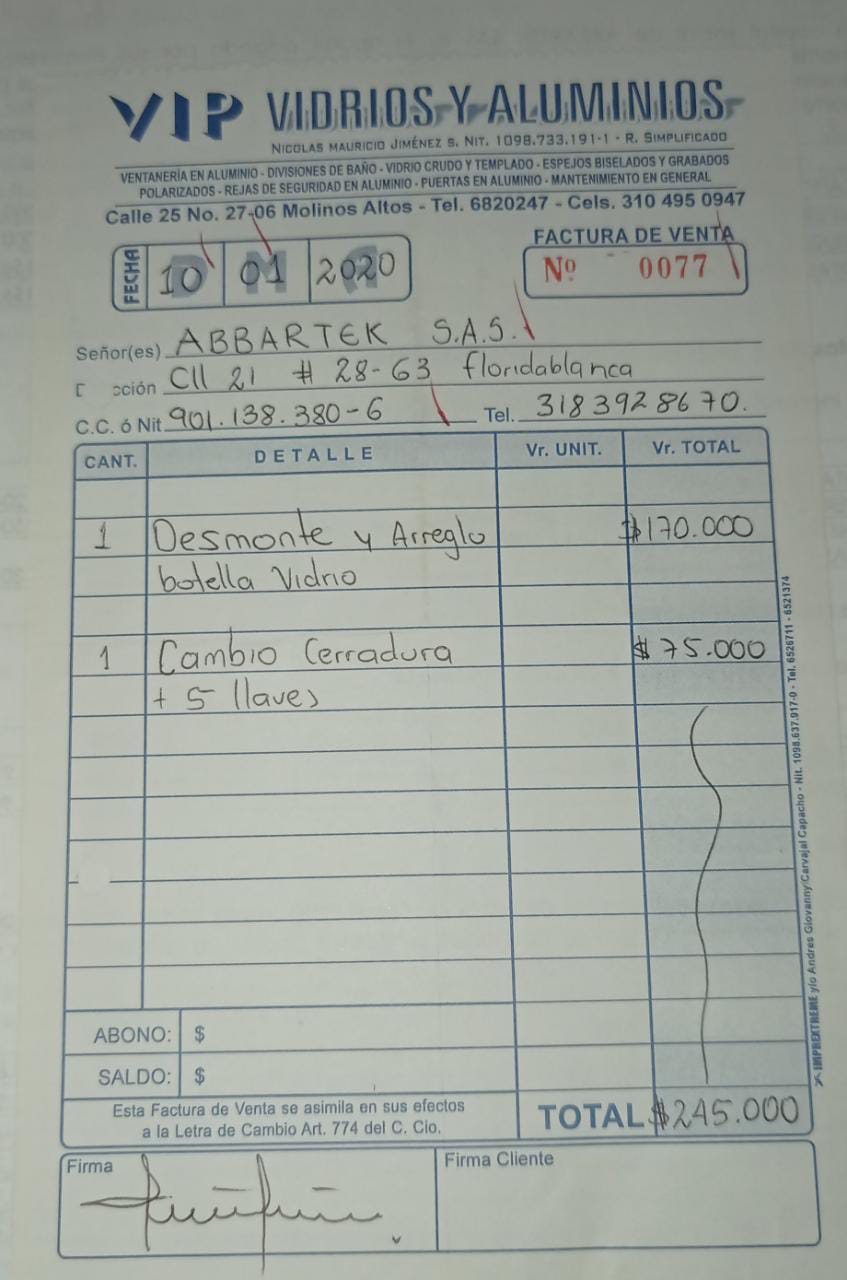 VIP VIDRIOS Y ALUMINIOS
NICOLAS MAURICIO JIMÉNEZ S. NIT. 1098.733.191-1 - R. SIMPLIFICADO
VENTANERÍA EN ALUMINIO - DIVISIONES DE BAÑO - VIDRIO CRUDO Y TEMPLADO - ESPEJOS BISELADOS Y GRABADOS
POLARIZADOS - REJAS DE SEGURIDAD EN ALUMINIO - PUERTAS EN ALUMINIO - MANTENIMIENTO EN GENERAL
Calle 25 No. 27-06 Molinos Altos - Tel. 6820247 - Cels. 310 495 0947
FECHA 10 01 2020
FACTURA DE VENTA
Nº 0077
Señor(es) ABBARTEK S.A.S.
D cción Cll 21 # 28-63 floridablanca
C.C. ó Nit 901.138.380-6 Tel. 318 392 86 70.
CANT. DETALLE Vr. UNIT. Vr. TOTAL
1 Desmonte y Arreglo $170.000
botella Vidrio
1 Cambio Cerradura $ 75.000
+ 5 llaves
ABONO: $
SALDO: $
Esta Factura de Venta se asimila en sus efectos
a la Letra de Cambio Art. 774 del C. Cio.
TOTAL $245.000
Firma
Firma Cliente
IMPREXTREME y/o Andres Giovanny Carvajal Capacho - Nit. 1098.637.917-0 - Tel. 6526711 - 6521374